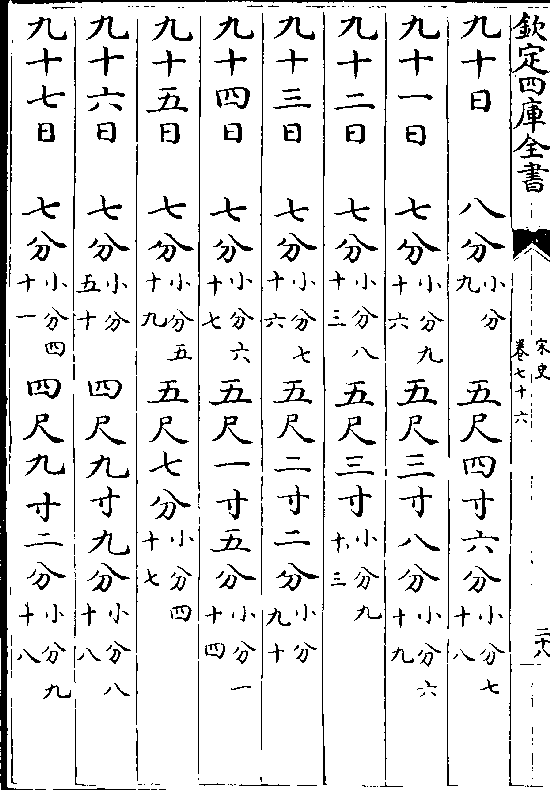 欽定四庫全書
宋史
卷七十六
二十八
九十日 八分小分九 五尺四寸六分小分七十八
九十一日 七分小分九十六 五尺三寸八分小分六十九
九十二日 七分小分八十三 五尺三寸小分九十三
九十三日 七分小分七十六 五尺二寸二分小分九十
九十四日 七分小分六十七 五尺一寸五分小分一十四
九十五日 七分小分五十九 五尺七分小分四十七
九十六日 七分小分五十 四尺九寸九分小分八十八
九十七日 七分小分四十一 四尺九寸二分小分九十八